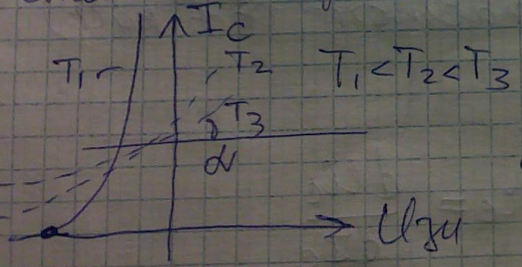 I_C
T_1
T_2
T_1 < T_2 < T_3
T_3
α
Uзи